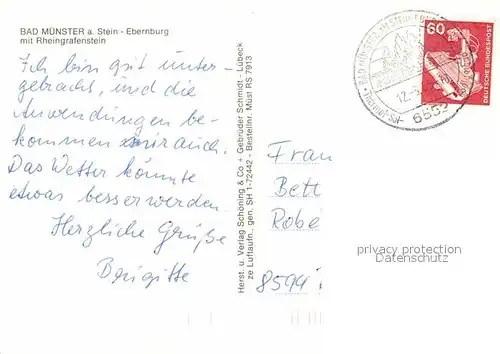 BAD MÜNSTER a. Stein - Ebernburg
mit Rheingrafenstein
Ich bin gut unter-
gebracht, und die
Anwendungen be-
kommen mir auch.
Das Wetter könnte
etwas besser werden.
Herzliche Grüße
Brigitte
Herst. u. Verlag Schöning & Co + Gebrüder Schmidt - Lübeck
ze Luftaufn., gen. SH 1-72442 - Bestellnr. Müst RS 7913
BAD MÜNSTER AM STEIN-EBERNBURG
6552
60
DEUTSCHE BUNDESPOST
Frau
Bett
Robe
8594
privacy protection
Datenschutz